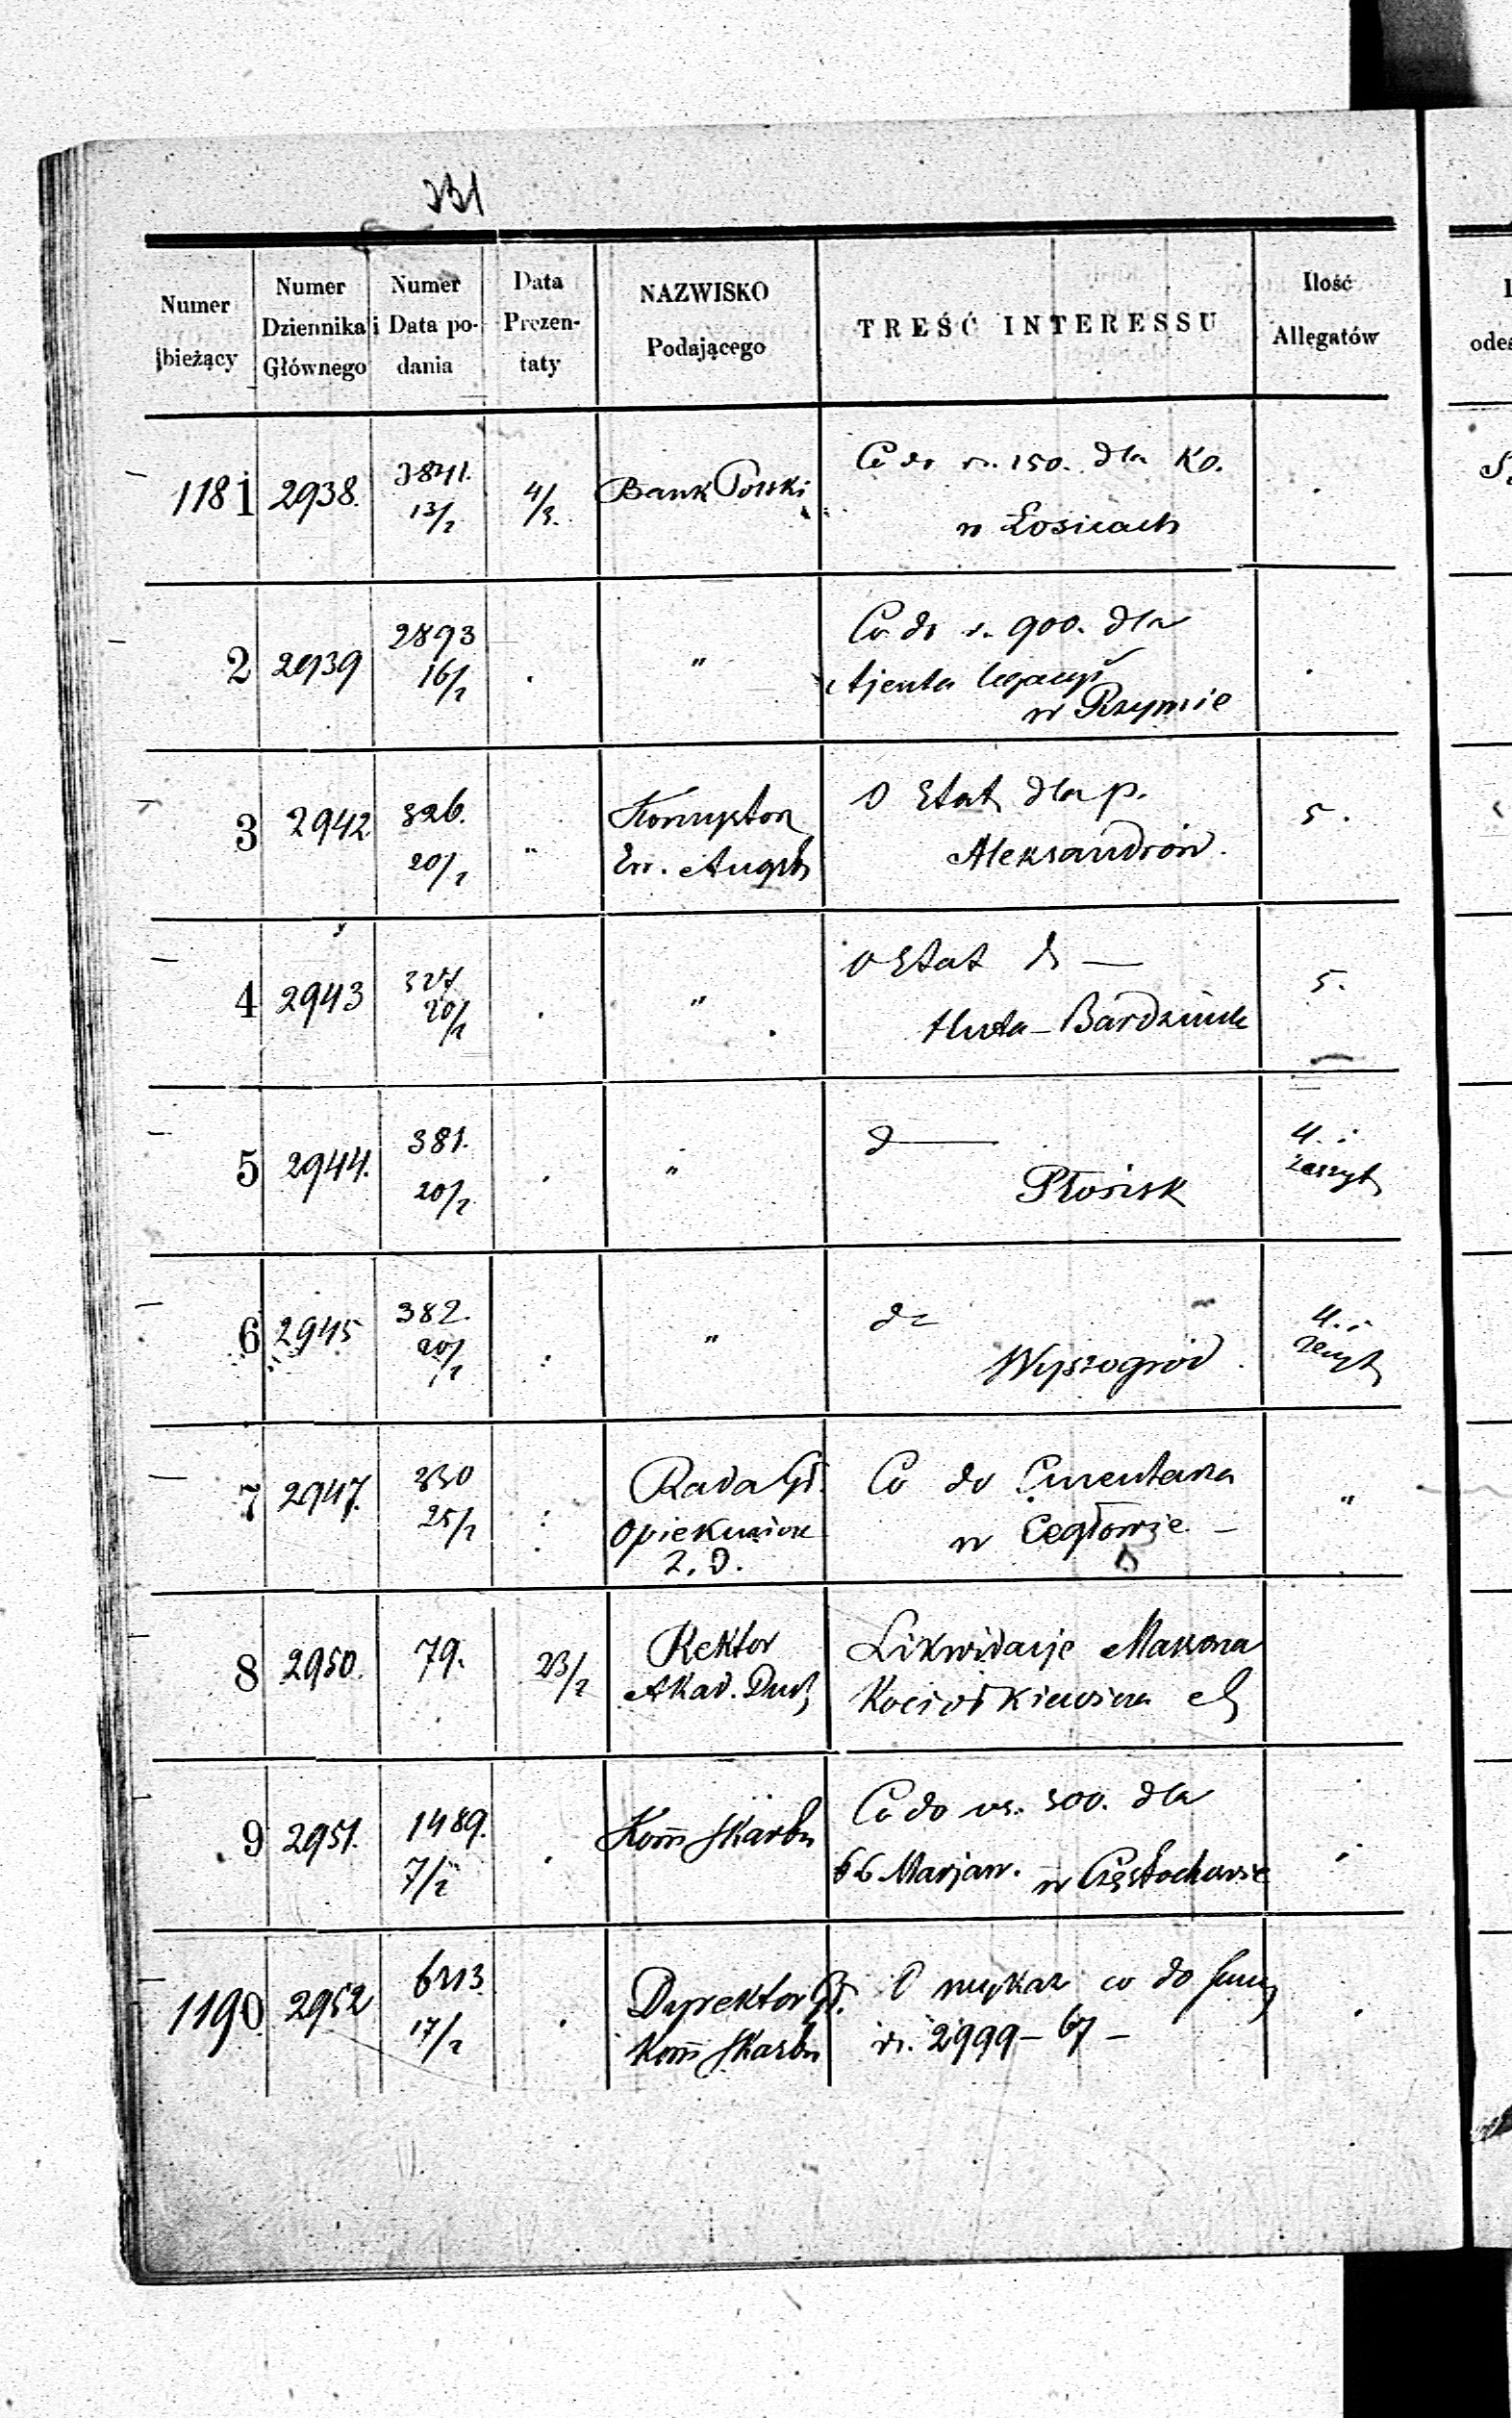 331
Numer bieżący
Numer Dziennika Głównego
Numer i Data podania
Data Prezentaty
NAZWISKO Podającego
TREŚĆ INTERESSU
Ilość Allegatów
1181 2938. 3871. 13/2 4/3. Bank Polski Co do rs. 150. dla Ko.
w Łosicach
2 2939 2893 16/2 . " Co do rs. 900. dla
Ajenta legacyi
w Rzymie
3 2942 326. 20/2 " Konsystorz Ew. Augsb O Etat dla p. 5.
Aleksandrów.
4 2943 327 20/2 . " O Etat d — 5.
Huta-Bardzińsk
5 2944. 381. 20/2 . " d — 4. i zeszyt
Płońsk
6 2945 382. 20/2 . " do 4. i zeszyt
Wyszogród.
7 2947. 230 25/2 : Rada Gł. Opiekuńcza Z. D. Co do Cmentarza "
w Cegłowie –
8 2950. 79. 23/2 Rektor Akad. Duch Likwidacje
9 2951. 1489. 7/2 . Kom Skarbu Co do rs. 300. dla
Marjan. w Częstochowie
1190 2952 6213. 17/2 . Dyrektor Gł. Kom Skarbu O wykaz co do sumy
rs. 2999 – 67 –